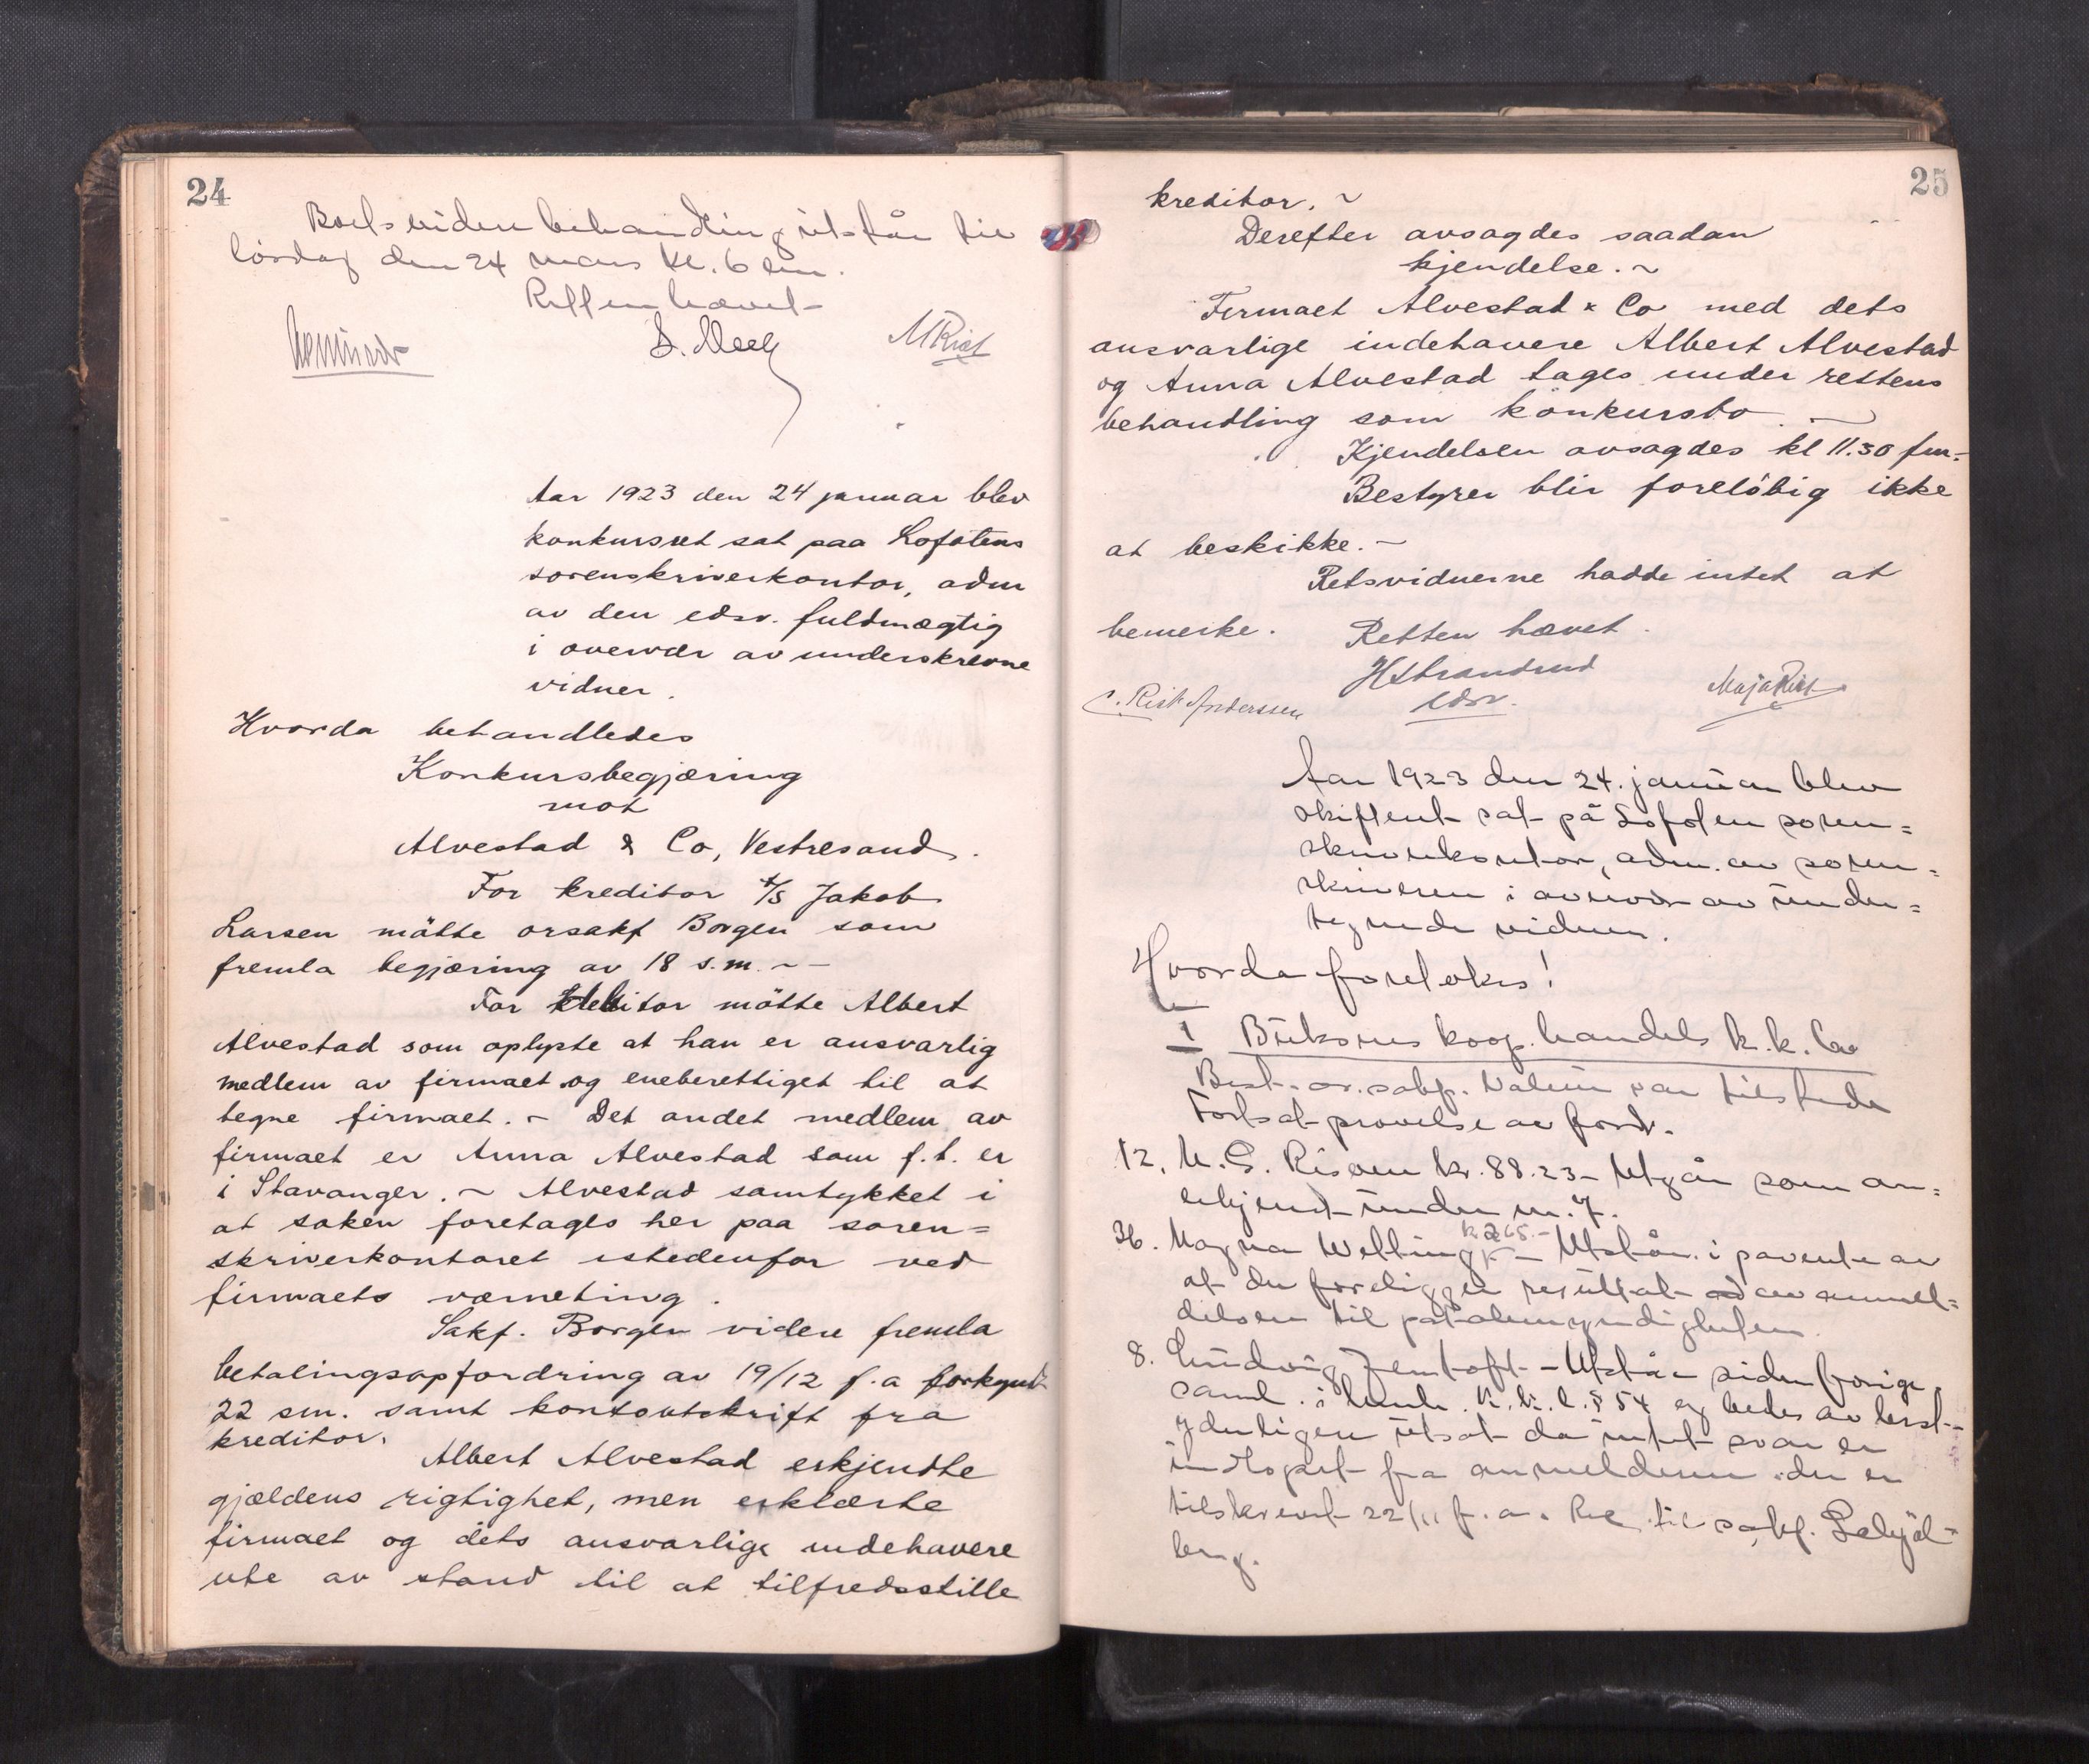 24
Boets videre behandling utstår til
lördag den 24 mars kl. 6 em.
Retten hævet
MRist
Aar 1923 den 24 januar blev
konkursret sat paa Lofotens
sorenskriverkontor, adm
av den edsv. fuldmægtig
i overvær av underskrevne
vidner.
Hvorda behandledes
Konkursbegjæring
mot
Alvestad & Co, Vestresand.
For kreditor A/S Jakob
Larsen mötte orsakf Borgen som
fremla begjæring av 18 s.m. ~
For debitor mötte Albert
Alvestad som oplyste at han er ansvarlig
medlem av firmaet og eneberettiget til at
tegne firmaet. ~ Det andet medlem av
firmaet er Anna Alvestad som f.t. er
i Stavanger. ~ Alvestad samtykket i
at saken foretages her paa soren=
skriverkontoret istedenfor ved
firmaets værneting.
Sakf. Borgen videre fremla
betalingsopfordring av 19/12 f.a forkynt
22 sm. samt kontoutskrift fra
kreditor.
Albert Alvestad erkjendte
gjældens rigtighet, men erklærte
firmaet og dets ansvarlige indehavere
ute av stand til at tilfredsstille
25
kreditor. ~
Derefter avsagdes saadan
kjendelse. ~
Firmaet Alvestad & Co med dets
ansvarlige indehavere Albert Alvestad
og Anna Alvestad tages under rettens
behandling som konkursbo. ~
Kjendelsen avsagdes kl 11.30 fm.
Bestyrer blir forelöbig ikke
at beskikke. ~
Retsvidnerne hadde intet at
bemerke. Retten hævet.
HStrandrud
edsv.
C. Rist Anderssen
Maja Rist
Aar 1923 den 24. januar blev
skifteret sat på Lofoten soren=
skriverkontor, adm. av soren=
skriveren i overvær av under=
tegnede vidner.
Hvorda foretokes!
I Buksnes koop. handels k.k. bo
Best. or. sakf. var tilstede
Fortsat prövelse av ford.
12. M. G. Risøen kr. 88.23 – Utgår som an=
erkjendt under nr. 7.
36. Magna Welling kr 265.- – Utstår i påvente av
at der foreligger resultat av anmel=
delsen til påtalemyndigheten.
8. Ludvig Jentoft – Utstår siden forrige
saml. i henh. k.k.l. § 54 og bedes av best.
yderligere utsat da intet svar er
indlöpet fra anmelderen der er
tilskrevet 22/11 f.a. til sakf.
berg.